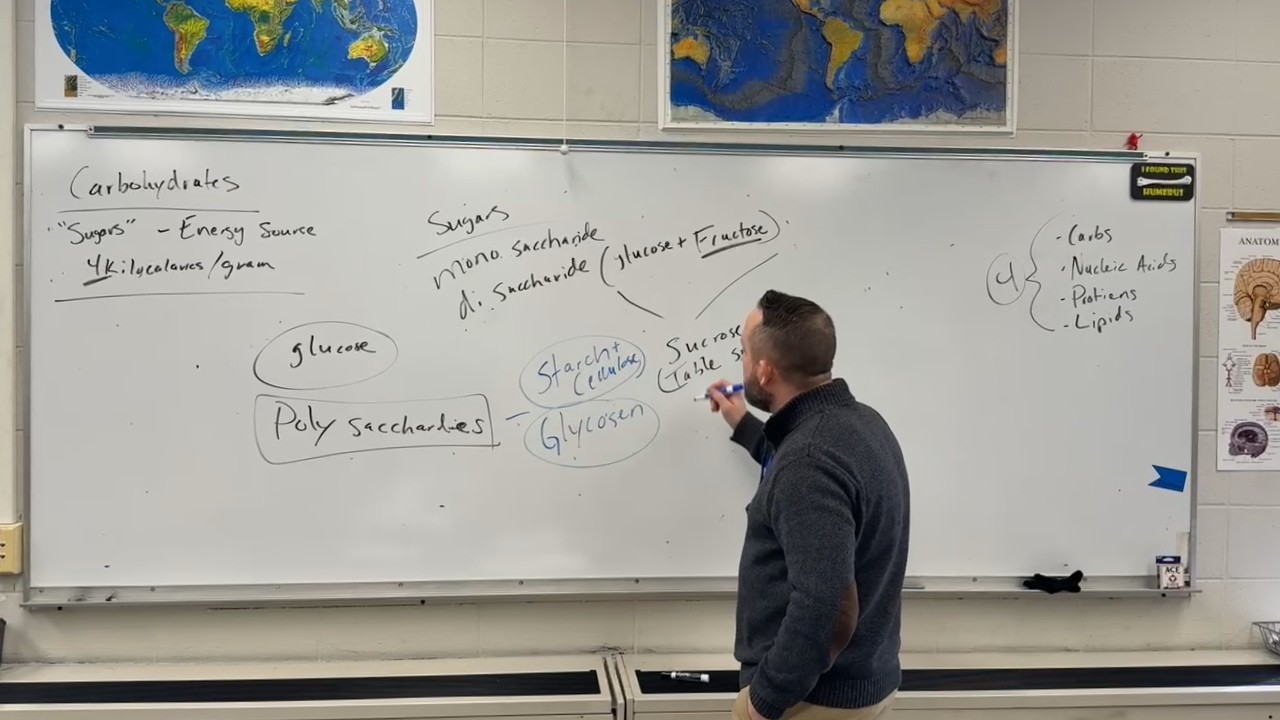 Carbohydrates
"Sugars" - Energy Source
4 Kilycalories/gram
Sugars
mono. saccharide
di. saccharide (glucose + Fructose)
glucose
Poly sacchardies -
Starch +
Cellulose
Glycogen
Sucrose
(Table
4
- Carbs
- Nucleic Acids
- Protiens
- Lipids
I FOUND THIS
HUMERUS
ANATOM
ACE